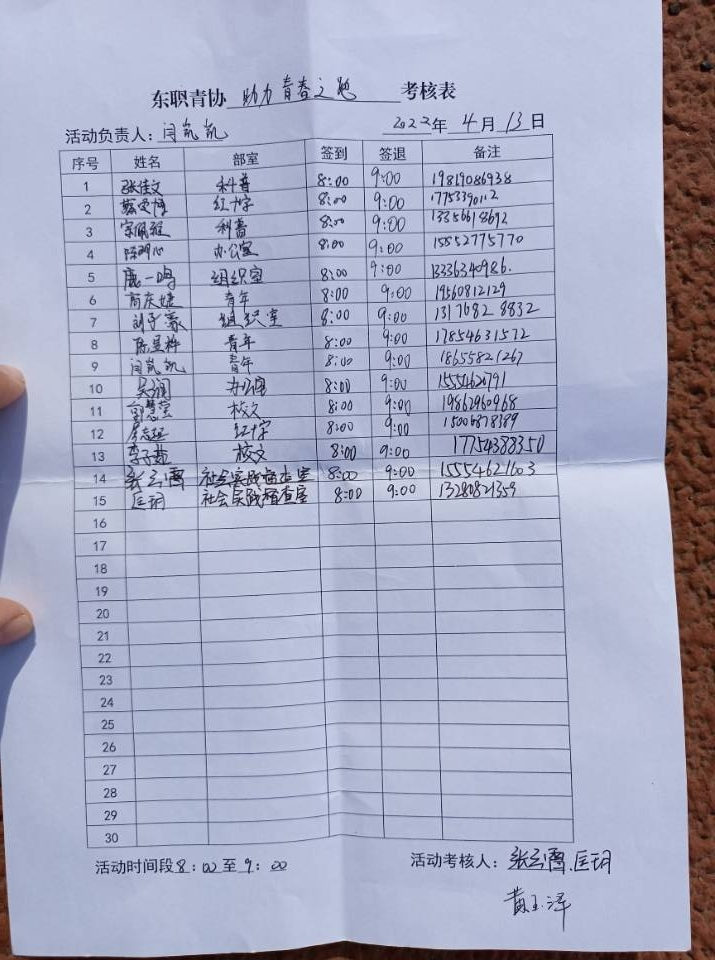 东职青协 助力青春之跑 考核表
活动负责人：闫凯凯 2022年 4月 13日
序号 姓名 部室 签到 签退 备注
1 张佳文 科普 8:00 9:00 19819086938
2 红十字 8:00 9:00 17753390112
3 科普 8:00 9:00 13356618692
4 陈明心 办公室 8:00 9:00 15552775770
5 鹿一鸣 组织室 8:00 9:00 13336340986.
6 商庆婕 青年 8:00 9:00 19560812129
7 刘子豪 组织室 8:00 9:00 1317682 8832
8 陈昱梓 青年 8:00 9:00 17854631572
9 闫凯凯 青年 8:00 9:00 18655821267
10 吴润 办公室 8:00 9:00 1555462
11 校文 8:00 9:00 19862960968
12 红十字 8:00 9:00 15006878389
13 李子越 校文 8:00 9:00 17754388350
14 社会实践督查室 8:00 9:00 15554621603
15 匡玥 社会实践督查室 8:00 9:00 13280821359
16
17
18
19
20
21
22
23
24
25
26
27
28
29
30
活动时间段8：00至9：00 活动考核人：匡玥
黄玉泽